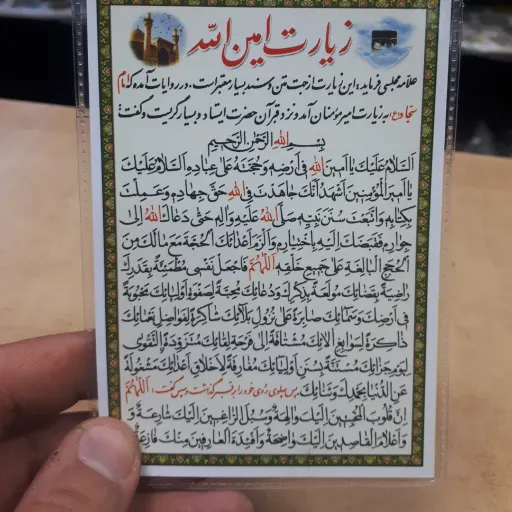 زیارت امین الله
علامه مجلسی فرماید: این زیارت از جهت متن و سند بسیار معتبر است. در روایات آمده که امام
سجاد(ع) به زیارت امیرمؤمنان آمد و نزد قبر آن حضرت ایستاد و بسیار گریست و گفت:
بِسْمِ اللهِ الرَّحْمٰنِ الرَّحيمِ
اَلسَّلامُ عَلَيْكَ يا اَمينَ اللهِ فى اَرْضِهِ وَحُجَّتَهُ عَلى عِبادِهِ اَلسَّلامُ عَلَيْكَ
يا اَميرَ الْمُؤْمِنينَ اَشْهَدُ اَنَّكَ جاهَدْتَ فِى اللهِ حَقَّ جِهادِهِ وَعَمِلْتَ
بِكِتابِهِ وَاتَّبَعْتَ سُنَنَ نَبِيِّهِ صَلَّى اللهُ عَلَيْهِ وَالِهِ حَتّى دَعاكَ اللهُ اِلى
جِوارِهِ فَقَبَضَكَ اِلَيْهِ بِاخْتِيارِهِ وَاَلْزَمَ اَعْدائَكَ الْحُجَّةَ مَعَ مالَكَ مِنَ
الْحُجَجِ الْبالِغَةِ عَلى جَميعِ خَلْقِهِ اَللّهُمَّ فَاجْعَلْ نَفْسى مُطْمَئِنَّةً بِقَدَرِكَ
راضِيَةً بِقَضائِكَ مُولَعَةً بِذِكْرِكَ وَدُعائِكَ مُحِبَّةً لِصَفْوَةِ اَوْلِيائِكَ مَحْبُوبَةً
فى اَرْضِكَ وَسَمائِكَ صابِرَةً عَلى نُزُولِ بَلائِكَ شاكِرَةً لِفَواضِلِ نَعْمائِكَ
ذاكِرَةً لِسَوابِغِ آلائِكَ مُشْتاقَةً اِلى فَرْحَةِ لِقائِكَ مُتَزَوِّدَةً التَّقْوى
لِيَوْمِ جَزائِكَ مُسْتَنَّةً بِسُنَنِ اَوْلِيائِكَ مُفارِقَةً لِاَخْلاقِ اَعْدائِكَ مَشْغُولَةً
عَنِ الدُّنْيا بِحَمْدِكَ وَثَنائِكَ. پس پهلوی روی خود را بر قبر گذاشت و می‌گفت: اَللّهُمَّ
اِنَّ قُلُوبَ الْمُخْبِتينَ اِلَيْكَ والِهَةٌ وَسُبُلَ الرّاغِبينَ اِلَيْكَ شارِعَةٌ وَ
وَاَعْلامَ الْقاصِدينَ اِلَيْكَ واضِحَةٌ وَاَفْئِدَةَ الْعارِفينَ مِنْكَ فازِعَةٌ